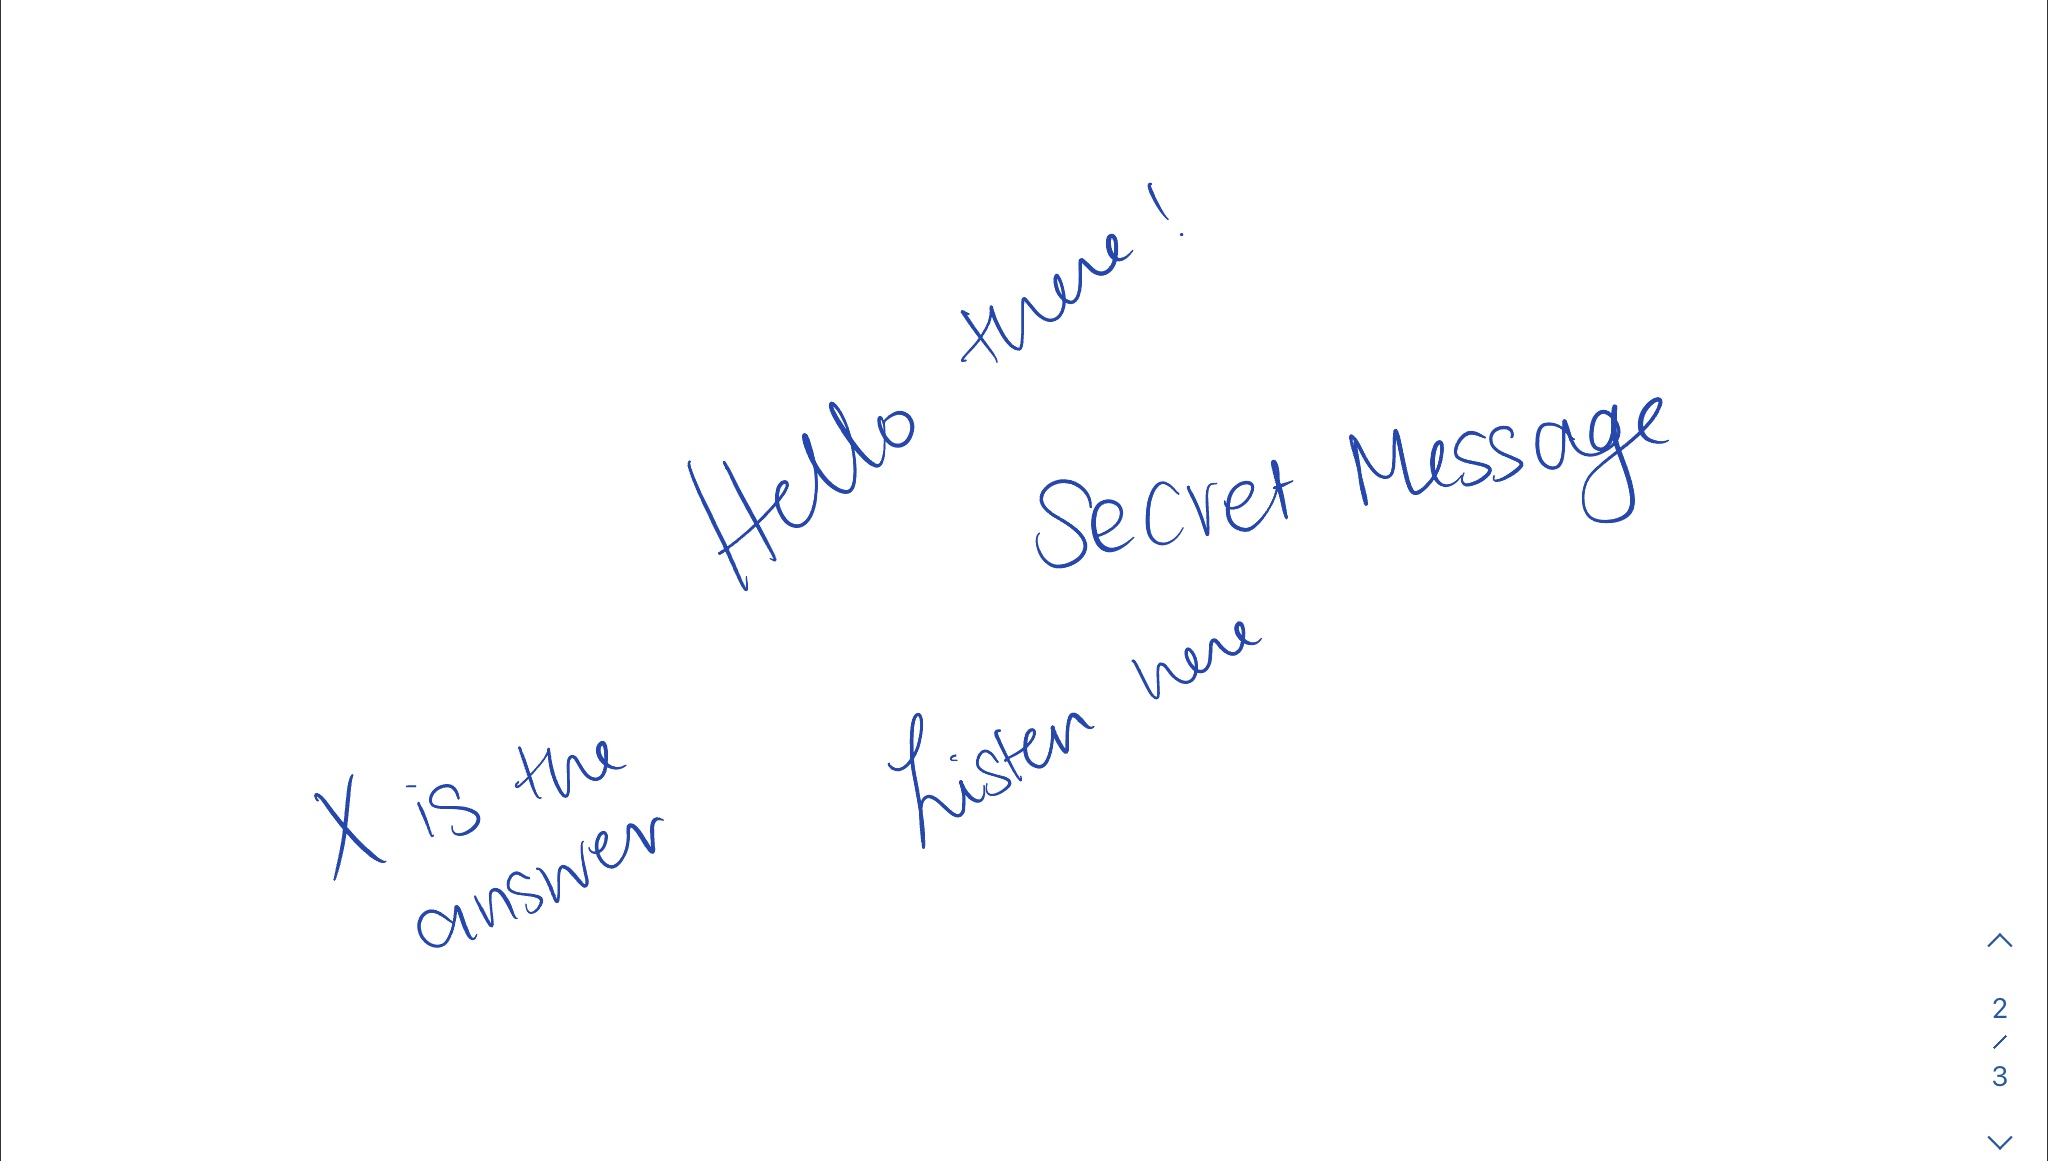 Hello there!
Secret Message
Listen here
X is the
answer
2
/
3